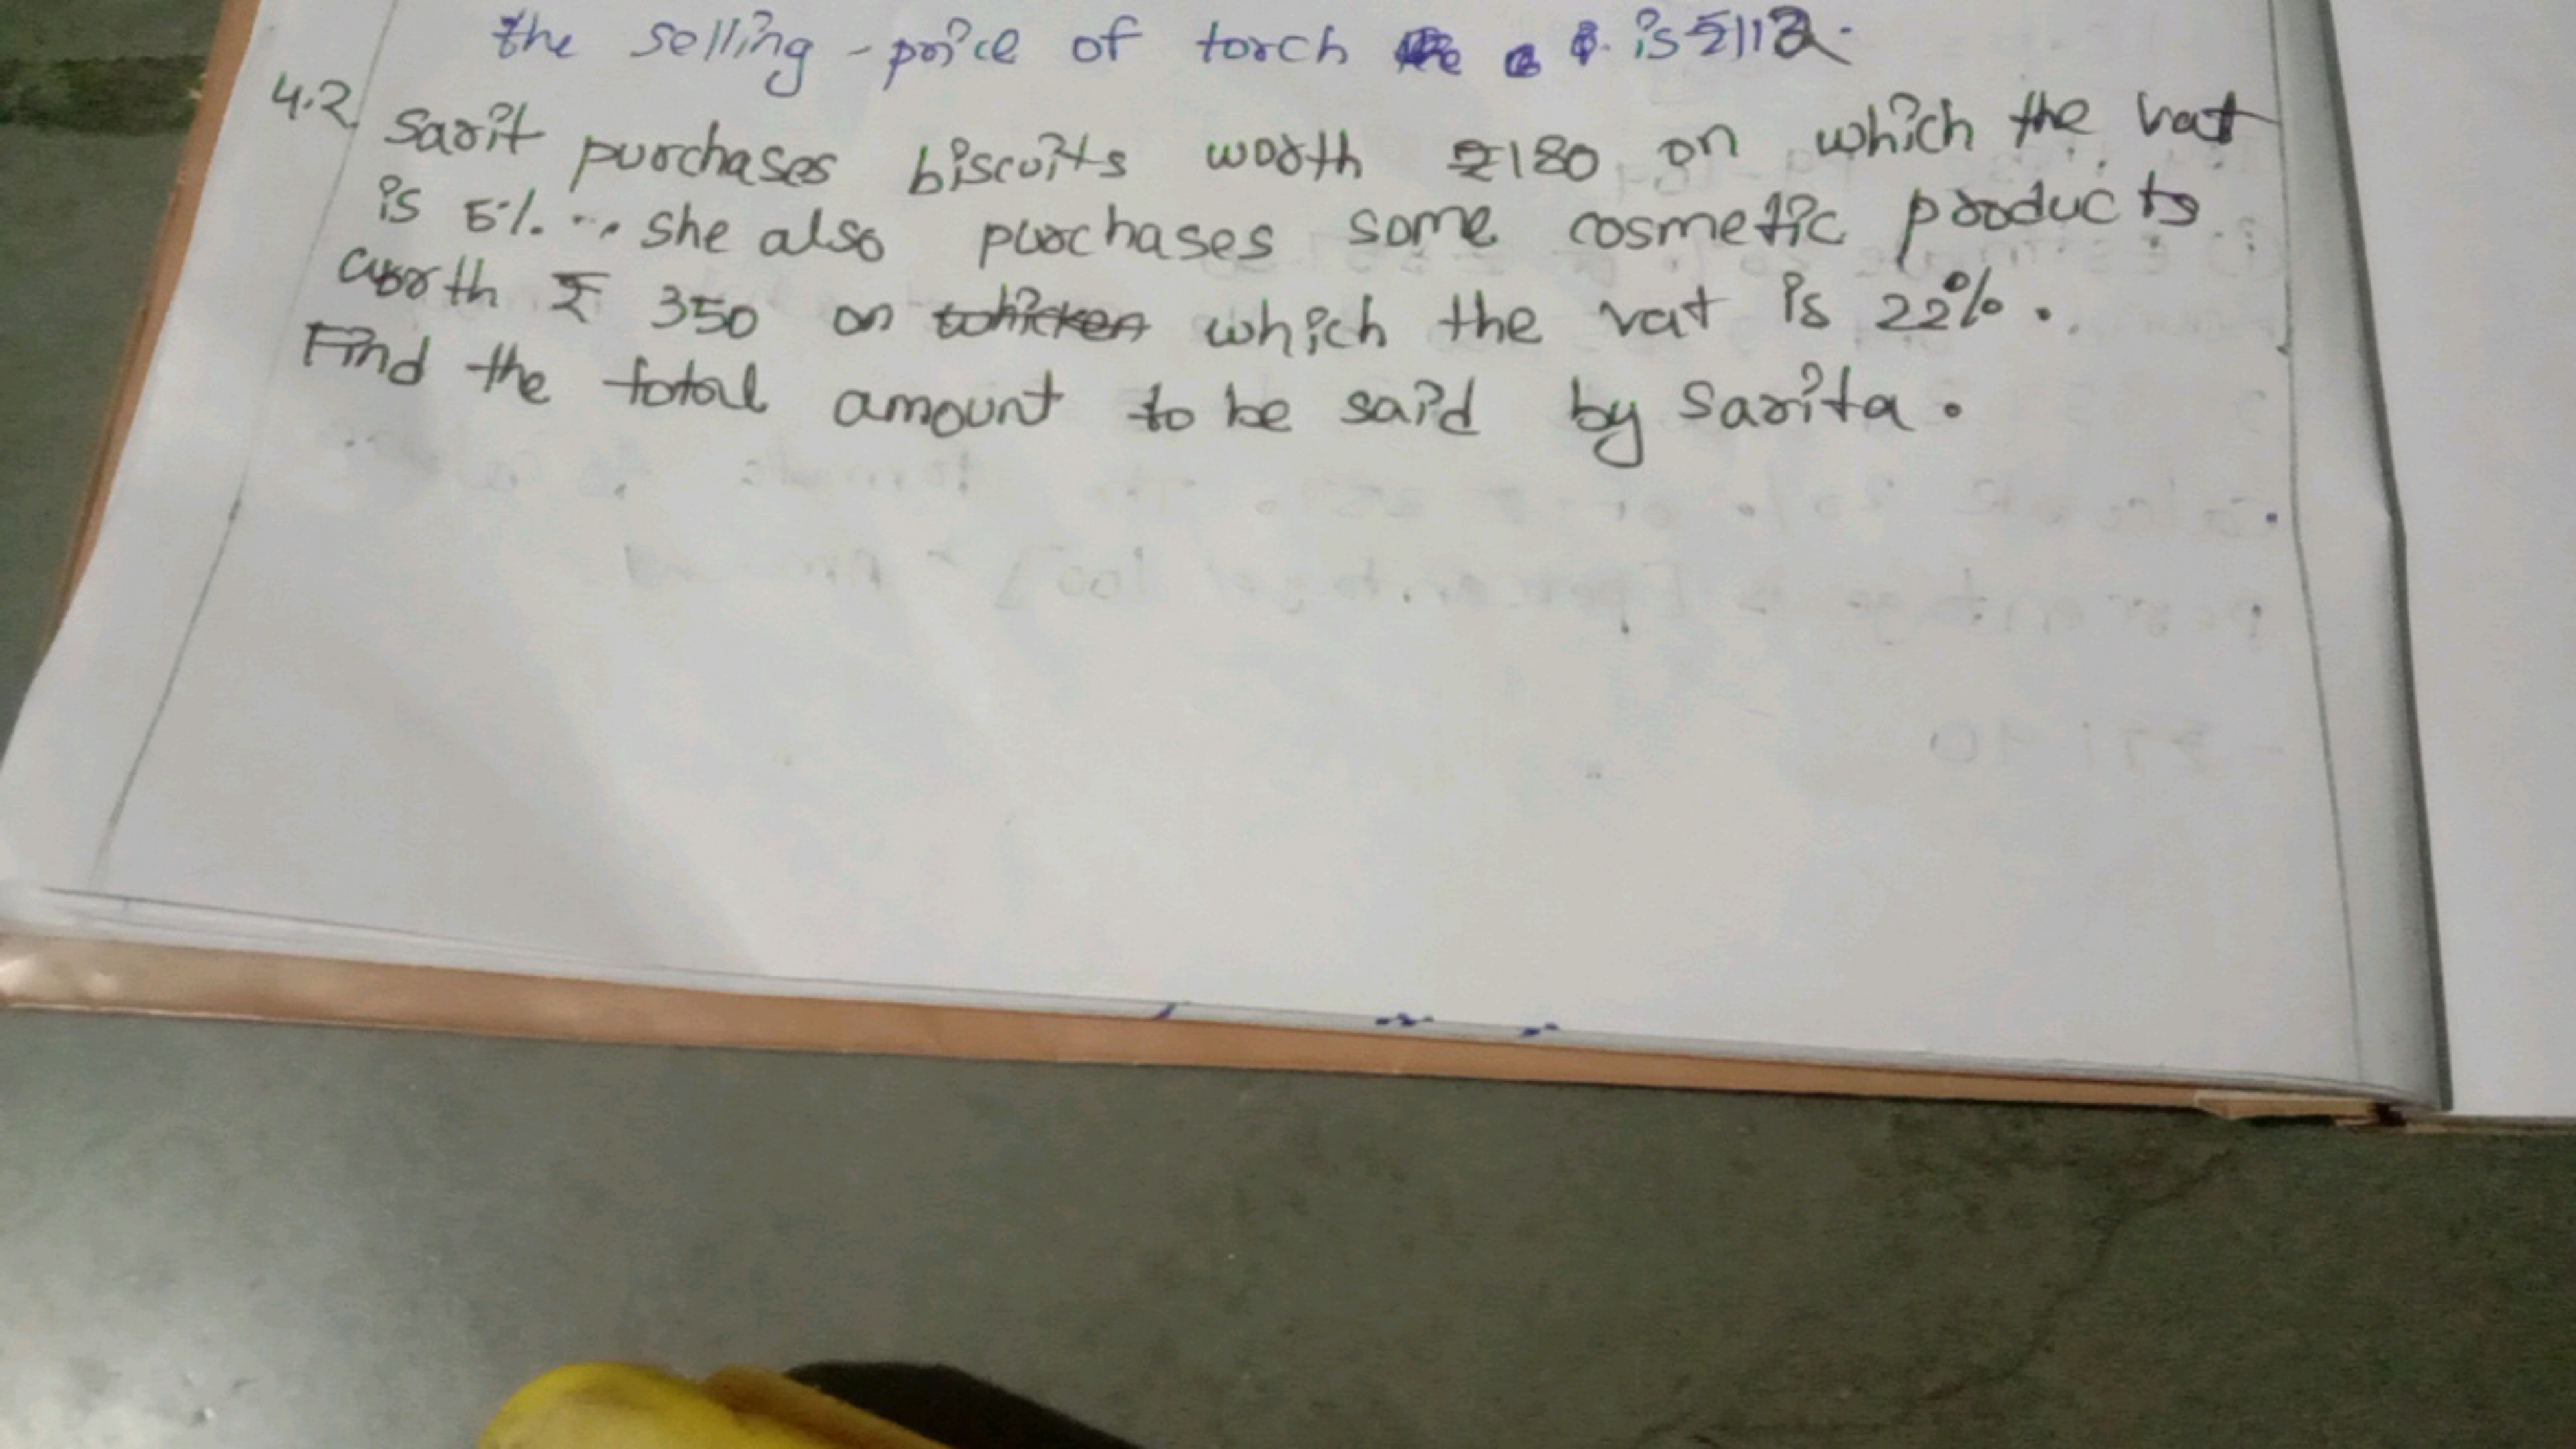 the selling-price of torch is ₹112.
4.2 Sarit purchases biscuits worth ₹180 on which the vat
is 5%... she also purchases some cosmetic products
worth ₹ 350 on which the vat is 22%.
Find the total amount to be said by Sarita.